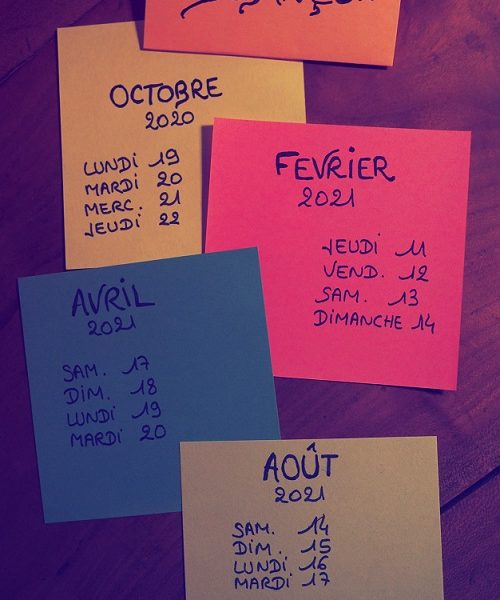 OCTOBRE
2020
LUNDI 19
MARDI 20
MERC. 21
JEUDI 22
FEVRIER
2021
JEUDI 11
VEND. 12
SAM. 13
DIMANCHE 14
AVRIL
2021
SAM. 17
DIM. 18
LUNDI 19
MARDI 20
AOÛT
2021
SAM. 14
DIM. 15
LUNDI 16
MARDI 17